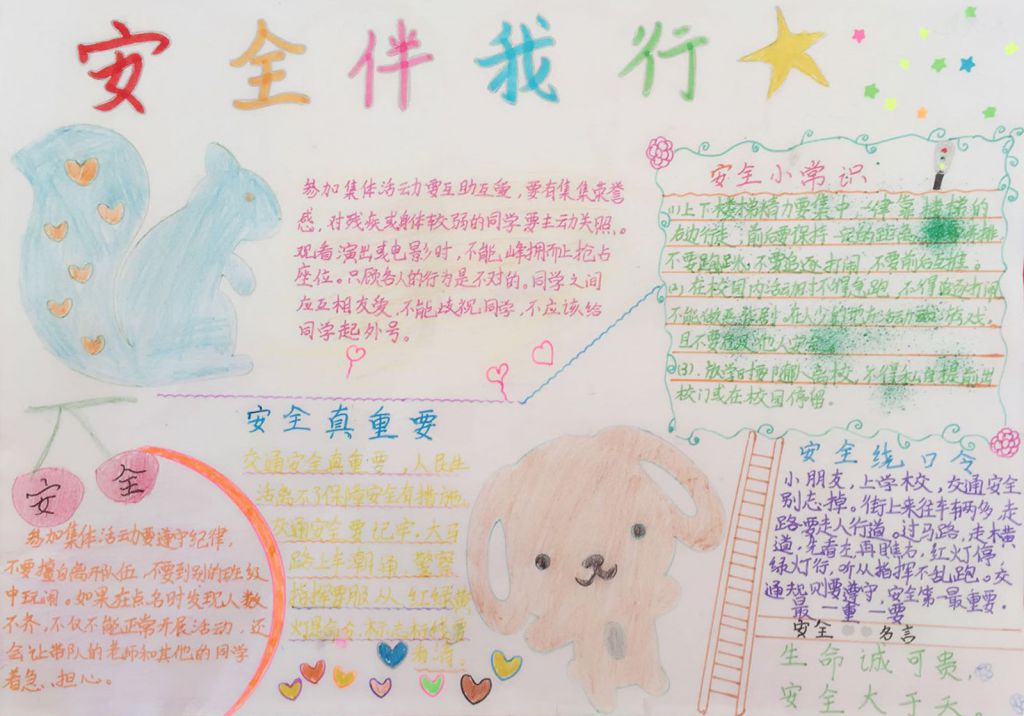 安全伴我行
参加集体活动要互助互爱,要有集集荣誉
感,对残疾或身体较弱的同学要主动关照。
观看演出或电影时,不能峰拥而止抢占
座位。只顾各人的行为是不对的。同学之间
应互相友爱,不能歧视同学,不应该给
同学起外号。
安全小常识
(1)上下楼梯精力要集中,一律靠楼梯的
右边行走,前后要保持一定的距离
不要跑跳,不要追逐打闹,不要前后互推。
(2).在校园内活动时不得急跑,不得追逐打闹
不能做恶作剧,在人少的地方活动或游戏。
且不要
(3).放学时要随队离校,不得私自提前出
校门或在校园停留。
安全真重要
交通安全真重要,人民生
活离不了保障安全有措施,
交通安全要记牢。大马
路上车潮涌,警察
指挥要服从红绿黄
灯是命令,标志标线要
看清。
安全
参加集体活动要遵守纪律,
不要擅自离开队伍,不要到别的班级
中玩闹。如果在点名时发现人数
不齐,不仅不能正常开展活动,还
会让带队的老师和其他的同学
着急、担心。
安全绕口令
小朋友,上学校,交通安全
别忘掉。街上来往车辆多,走
路要走人行道。过马路,走横
道,先看左再瞧右,红灯停,
绿灯行,听从指挥不乱跑。交
通规则要遵守,安全第一最重要。
最一重一要
安全名言
生命诚可贵,
安全大于天。